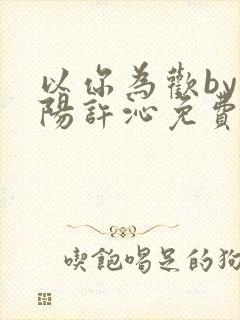 以你為歡by
陽許沁免費
喫飽喝足的狗